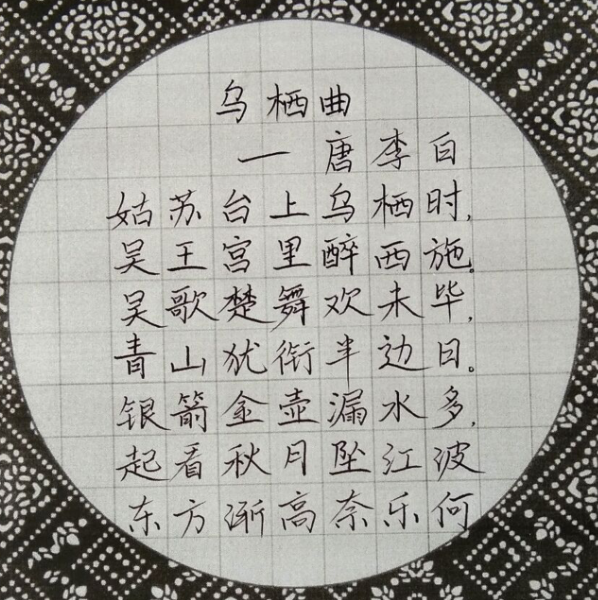 乌栖曲
— 唐李白
姑苏台上乌栖时,
吴王宫里醉西施。
吴歌楚舞欢未毕,
青山犹衔半边日。
银箭金壶漏水多,
起看秋月坠江波
东方渐高奈乐何